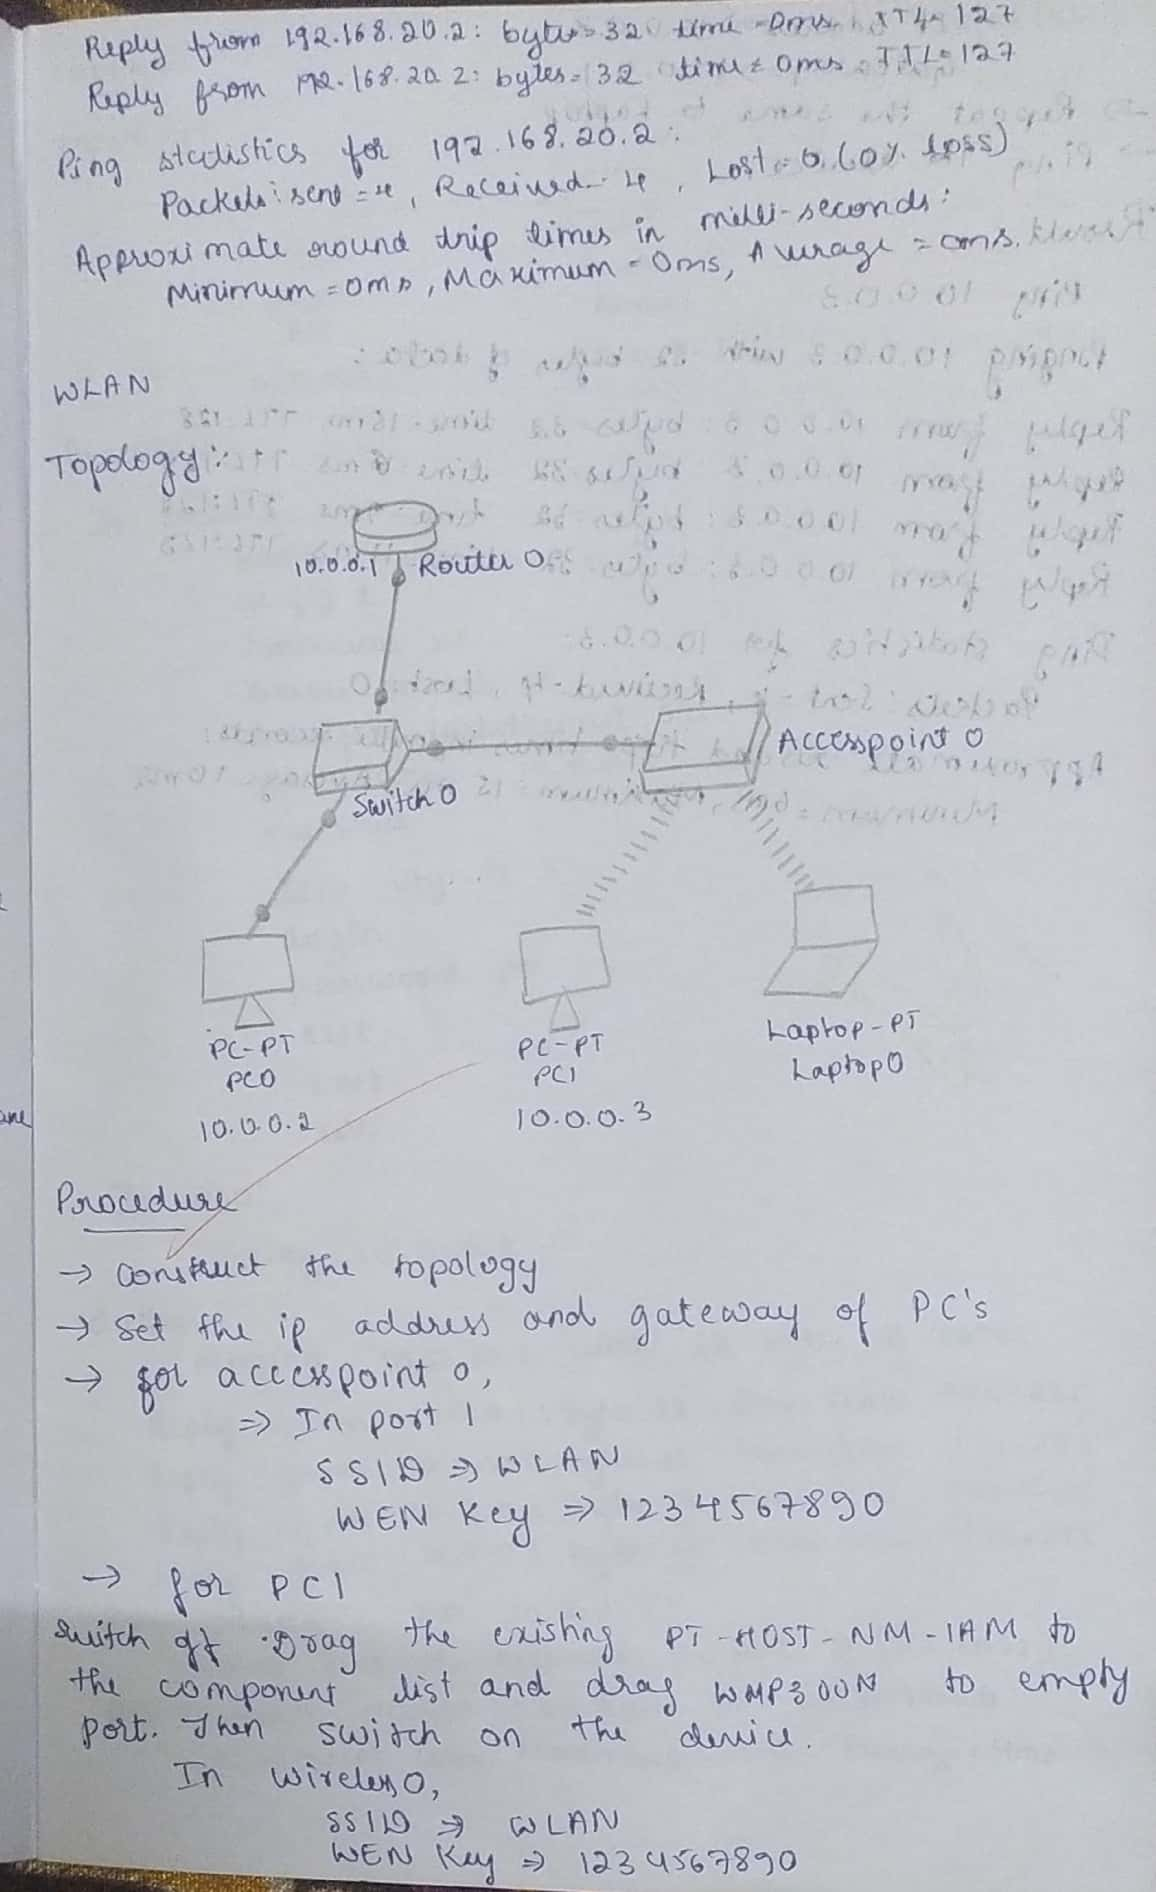 Reply from 192.168.20.2: bytes=32 time=0ms TTL=127
Reply from 192.168.20.2: bytes=32 time=0ms TTL=127
Ping statistics for 192.168.20.2:
Packets: sent=4, Received=4, Lost=0 (0% loss)
Approximate round trip times in milli-seconds:
Minimum=0ms, Maximum=0ms, Average=0ms.
WLAN
Topology:
10.0.0.1 Router 0
Accesspoint 0
Switch 0
PC-PT PC-PT Laptop-PT
PC0 PC1 Laptop0
10.0.0.2 10.0.0.3
Procedure
→ Construct the topology
→ Set the ip address and gateway of PC's
→ for accesspoint 0,
⇒ In port 1
SSID ⇒ WLAN
WEN Key ⇒ 1234567890
→ for PC1
Switch off. Drag the existing PT-HOST-NM-1AM to
the component list and drag WMP300N to empty
port. Then switch on the device.
In wireless0,
SSID ⇒ WLAN
WEN Key ⇒ 1234567890